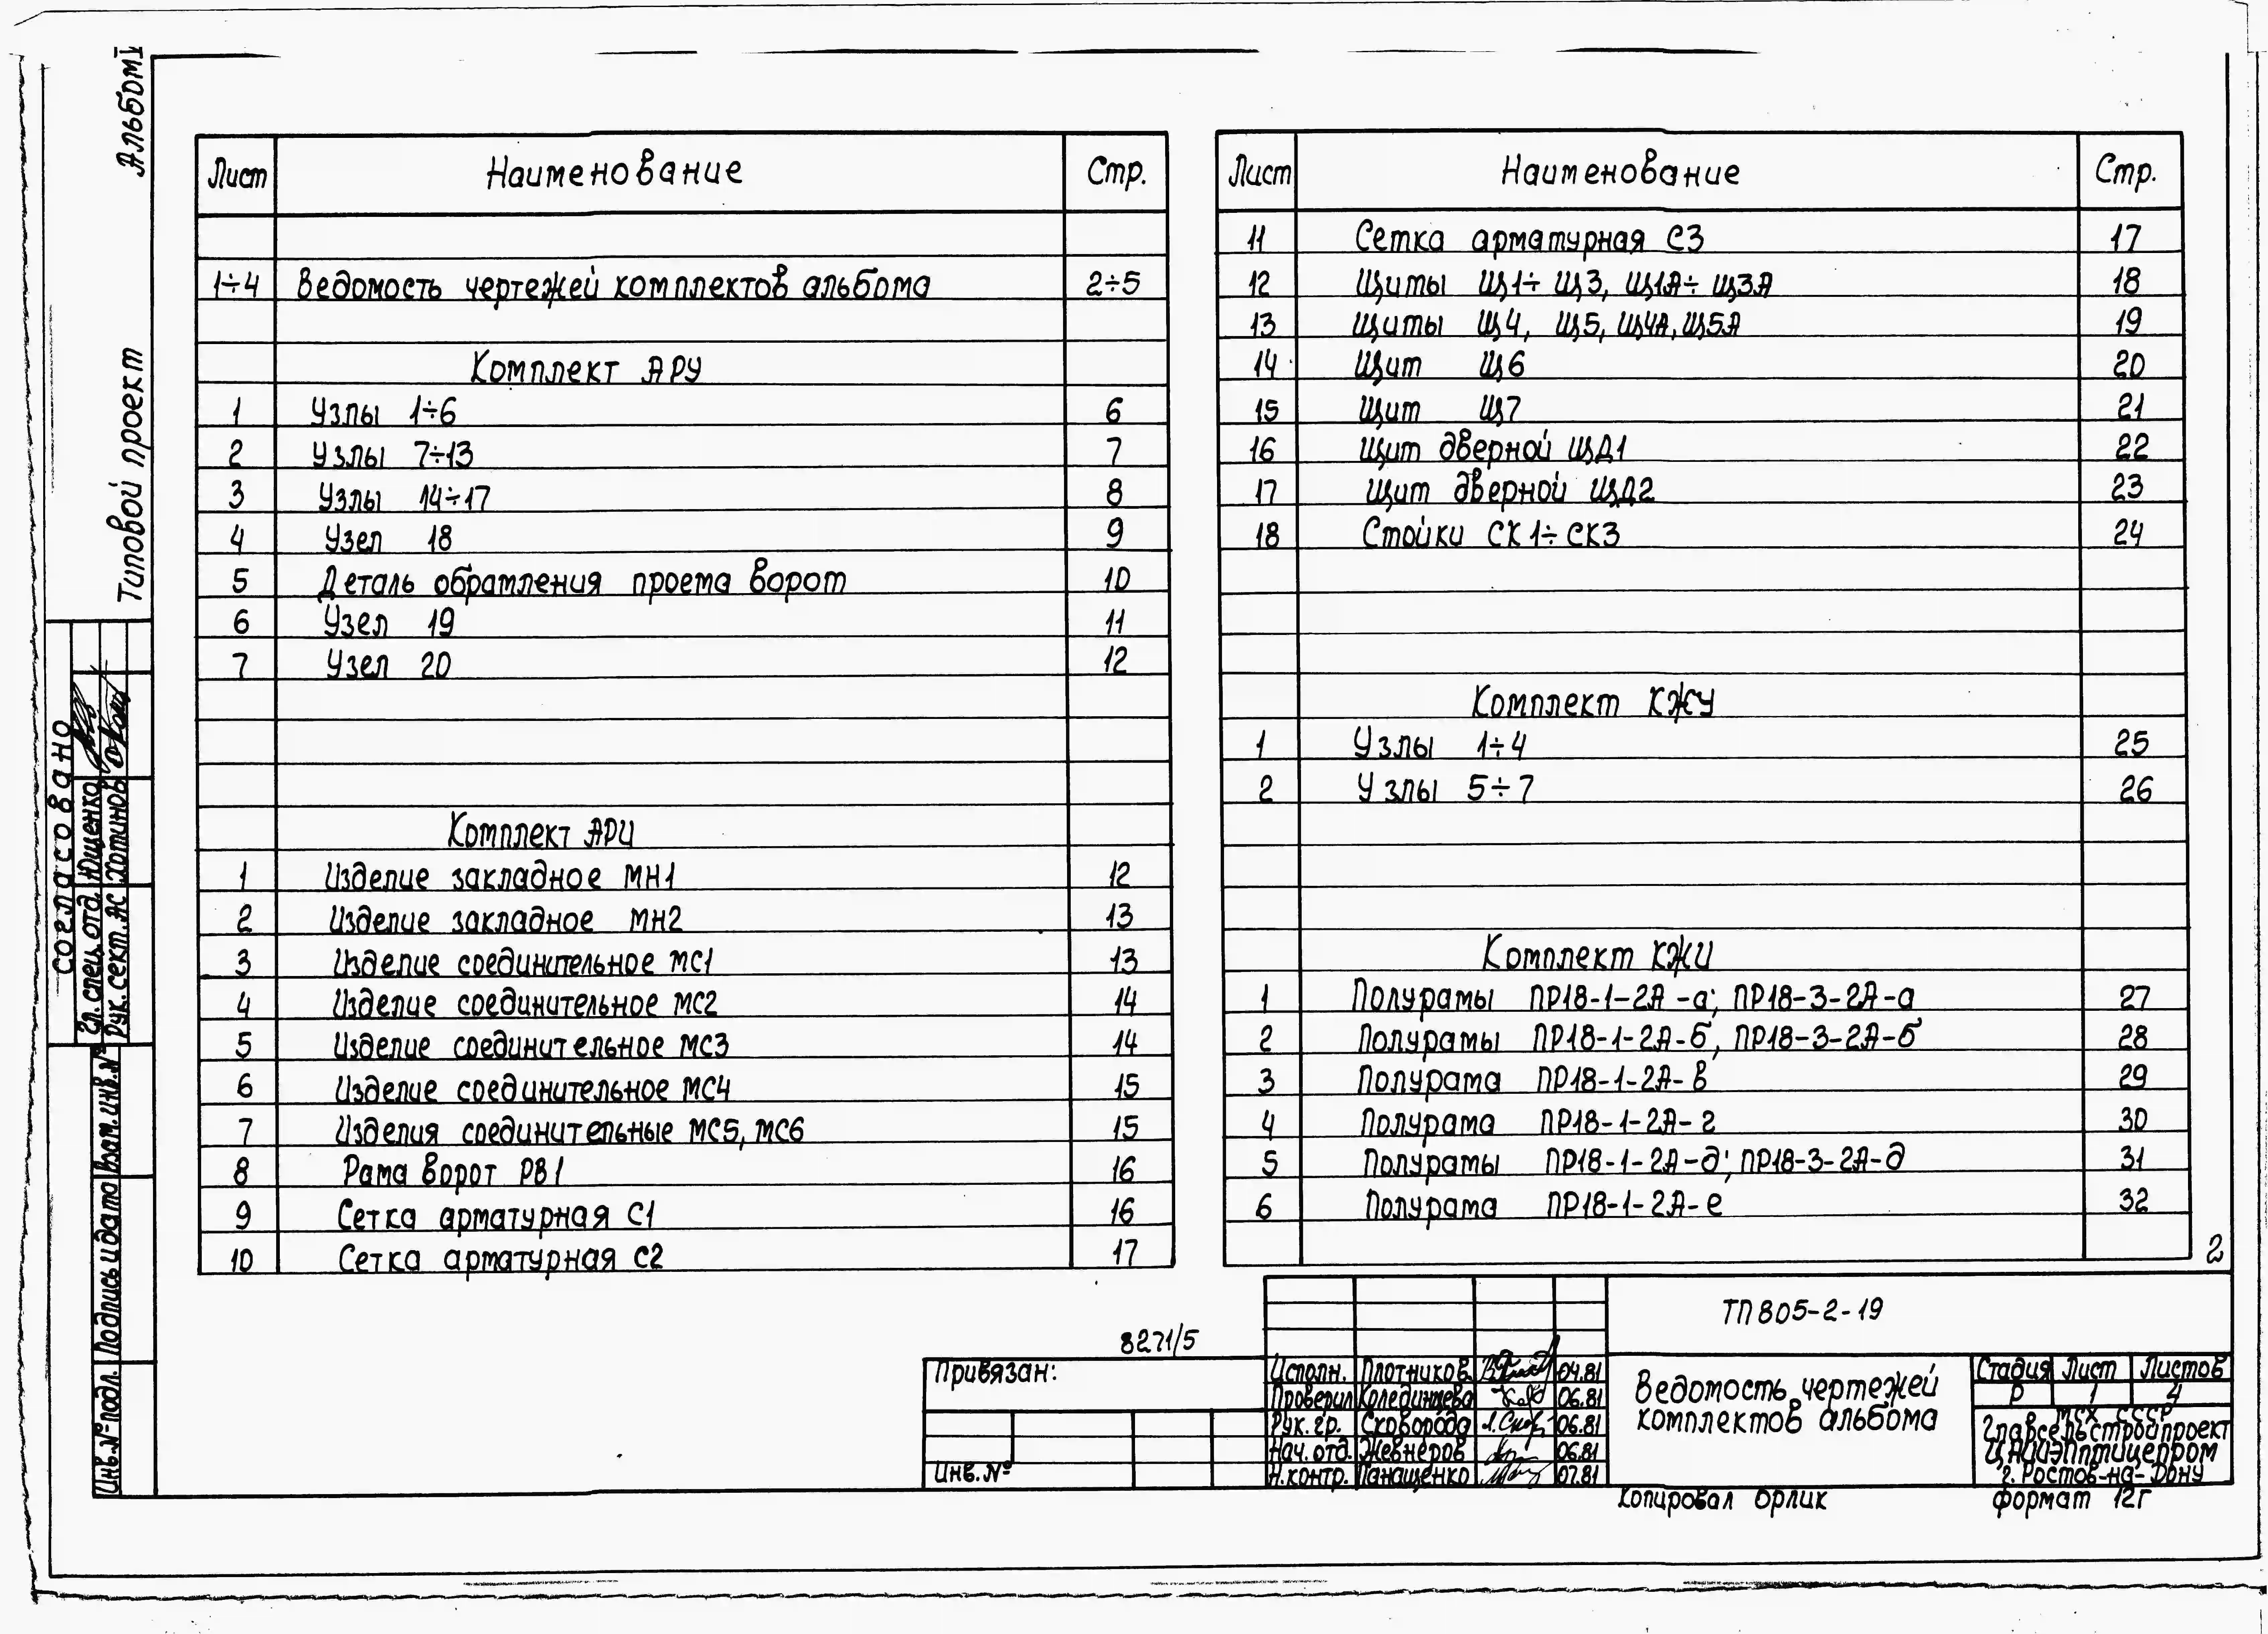 Альбом
Типовой проект
Лист Наименование Стр.
1÷4 Ведомость чертежей комплектов альбома 2÷5
Комплект АРУ
1 Узлы 1÷6 6
2 Узлы 7÷13 7
3 Узлы 14÷17 8
4 Узел 18 9
5 Деталь обрамления проема ворот 10
6 Узел 19 11
7 Узел 20 12
Комплект АРИ
1 Изделие закладное МН1 12
2 Изделие закладное МН2 13
3 Изделие соединительное МС1 13
4 Изделие соединительное МС2 14
5 Изделие соединительное МС3 14
6 Изделие соединительное МС4 15
7 Изделия соединительные МС5, МС6 15
8 Рама ворот РВ1 16
9 Сетка арматурная С1 16
10 Сетка арматурная С2 17
Лист Наименование Стр.
11 Сетка арматурная С3 17
12 Щиты Щ1÷Щ3, Щ1А÷Щ3А 18
13 Щиты Щ4, Щ5, Щ4А, Щ5А 19
14 Щит Щ6 20
15 Щит Щ7 21
16 Щит дверной ЩД1 22
17 Щит дверной ЩД2 23
18 Стойки СК1÷СК3 24
Комплект КЖУ
1 Узлы 1÷4 25
2 Узлы 5÷7 26
Комплект КЖИ
1 Полурамы ПР18-1-2А-а; ПР18-3-2А-а 27
2 Полурамы ПР18-1-2А-б, ПР18-3-2А-б 28
3 Полурама ПР18-1-2А-в 29
4 Полурама ПР18-1-2А-г 30
5 Полурамы ПР18-1-2А-д; ПР18-3-2А-д 31
6 Полурама ПР18-1-2А-е 32
2
согласовано
Гл. спец. отд. Ющенко
Рук. сект. АС Хотинов
Инв. № подл. Подпись и дата Взам. инв. №
8271/5
Привязан:
Инв. №
Исполн. Плотников 04.81
Проверил Колединцева 06.81
Рук. гр. Сковорода 06.81
Нач. отд. Жевнеров 06.81
Н. контр. Панащенко 07.81
ТП 805-2-19
Ведомость чертежей
комплектов альбома
Стадия Лист Листов
Р 1 4
МСХ СССР
Главсельстройпроект
ЦНИИЭПптицепром
г. Ростов-на-Дону
Копировал Орлик
формат 12г